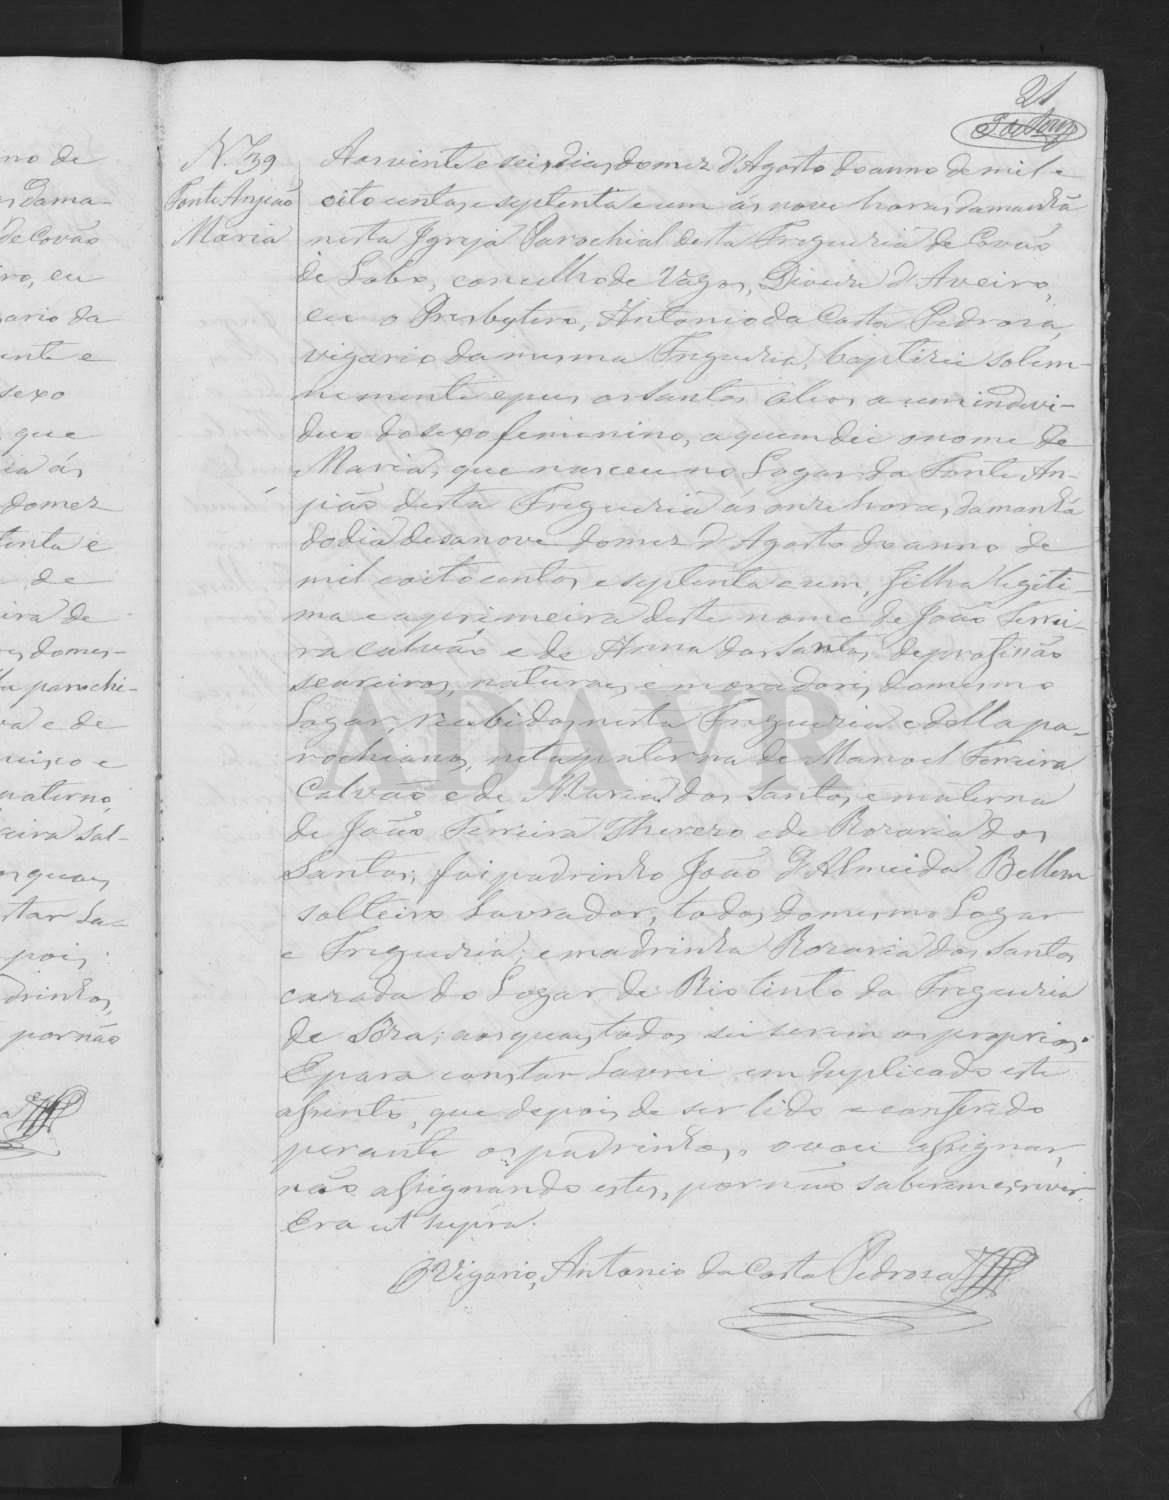 21
N.º 39
Fonte Anjeão
Maria
Aos vinte e seis dias do mez d'Agosto do anno de mil e
oito centos e septenta e um ás nove horas da manhã
nesta Igreja Parochial desta Freguezia de Covão
de Lobo, concelho de Vagos, Diocese d'Aveiro,
eu o Presbytero, Antonio da Costa Pedrosa,
vigario da mesma Freguezia, baptizei solem-
nemente e pus os santos oleos a um indevi-
duo do sexo femenino, a quem dei o nome de
Maria, que nasceu no Logar da Fonte An-
jião desta Freguezia ás onze horas da manhã
do dia desanove do mez d'Agosto do anno de
mil e oito centos e septenta e um, filha legiti-
ma e a primeira deste nome de João Ferrei-
ra Calvão e de Anna dos Santos, de profissão
seareiros, naturaes e moradores do mesmo
Logar, recebidos nesta Freguezia e della pa-
rochianos, neta paterna de Manoel Ferreira
Calvão e de Maria dos Santos, e materna
de João Ferreira Therezo e de Rozaria dos
Santos; foi padrinho João d'Almeida Bellem
solteiro Lavrador, todos do mesmo Logar
e Freguezia; e madrinha Rozaria dos Santos
cazada do Logar de Rio tinto da Freguezia
de Sôza; aos quaes todos sei serem os proprios.
E para constar Lavrei em duplicado este
assento, que depois de ser lido e conferido
perante os padrinhos, o vou assignar,
não assignando estes, por não saberem escrever.
Era ut supra.
O Vigario, Antonio da Costa Pedrosa
ADAVR
no de
de Covão
ro, eu
ario da
ente e
sexo
que
ia ás
do mez
tenta e
de
ira de
s domes-
la parochi-
va e de
uixo e
materno,
eira Sal-
s quaes
star La-
pois
drinhos,
por não